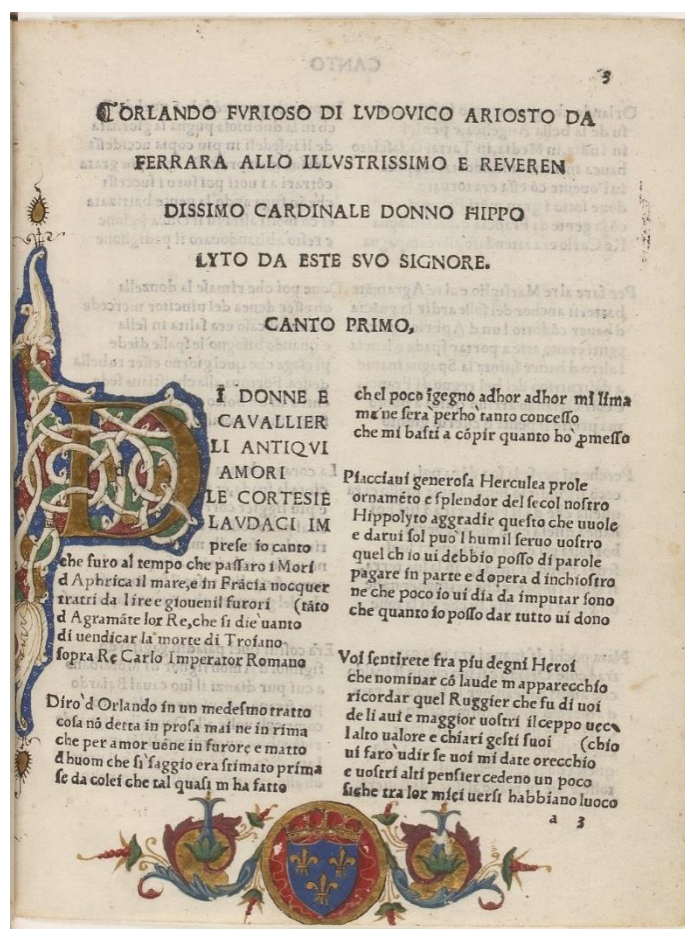 3
ORLANDO FVRIOSO DI LVDOVICO ARIOSTO DA
FERRARA ALLO ILLVSTRISSIMO E REVEREN
DISSIMO CARDINALE DONNO HIPPO
LYTO DA ESTE SVO SIGNORE.
CANTO PRIMO,
D
d
I DONNE E
CAVALLIER
LI ANTIQVI
AMORI
LE CORTESIE
LAVDACI IM
prese io canto
che furo al tempo che paſſaro i Mori
d Aphrica il mare,e in Frãcia nocquer
tratti da l ire e giouenil furori (tãto
d Agramãte lor Re,che ſi die uanto
di uendicar la morte di Troiano
ſopra Re Carlo Imperator Romano
Diro d'Orlando in un medeſmo tratto
coſa nõ detta in proſa mai ne in rima
che per amor uẽne in furore e matto
d huom che ſi ſaggio era ſtimato prima
ſe da colei che tal quaſi m ha fatto
chel poco ĩgegno adhor adhor mi lima
me ne ſera perho tanto conceſſo
che mi baſti a cõpir quanto ho ꝓmeſſo
Piacciaui generoſa Herculea prole
ornamẽto e ſplendor del ſecol noſtro
Hippolyto aggradir queſto che uuole
e darui ſol puo l humil ſeruo uoſtro
quel ch io ui debbio poſſo di parole
pagare in parte e d opera d inchioſtro
ne che poco io ui dia da imputar ſono
che quanto io poſſo dar tutto ui dono
Voi ſentirete fra piu degni Heroi
che nominar cõ laude m apparecchio
ricordar quel Ruggier che fu di uoi
de li aui e maggior uoſtri il ceppo uec
lalto ualore e chiari geſti ſuoi (chio
ui faro udir ſe uoi mi date orecchio
e uoſtri alti penſier cedeno un poco
ſi che tra lor miei uerſi habbiano luoco
a 3